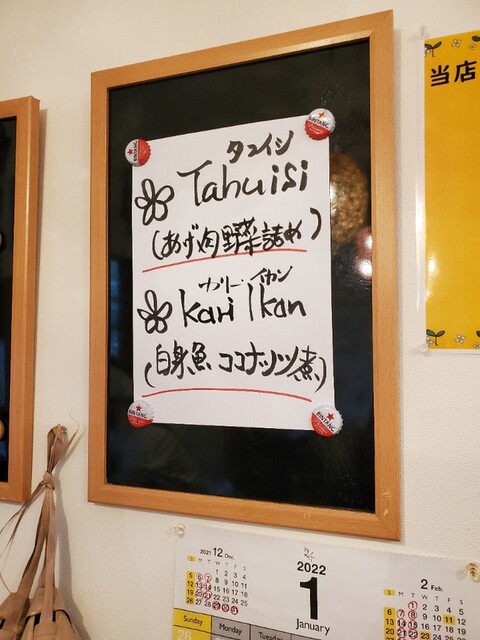 タフイシ
Tahu isi
(あげ肉野菜詰め)
カリー・イカン
kari Ikan
(白身魚 ココナッツ煮)
BINTANG
BINTANG
BINTANG
BINTANG
当店
2021 12 Dec.
2022
1
January
2 Feb.
S M T W T F S
Sunday Monday Tuesday